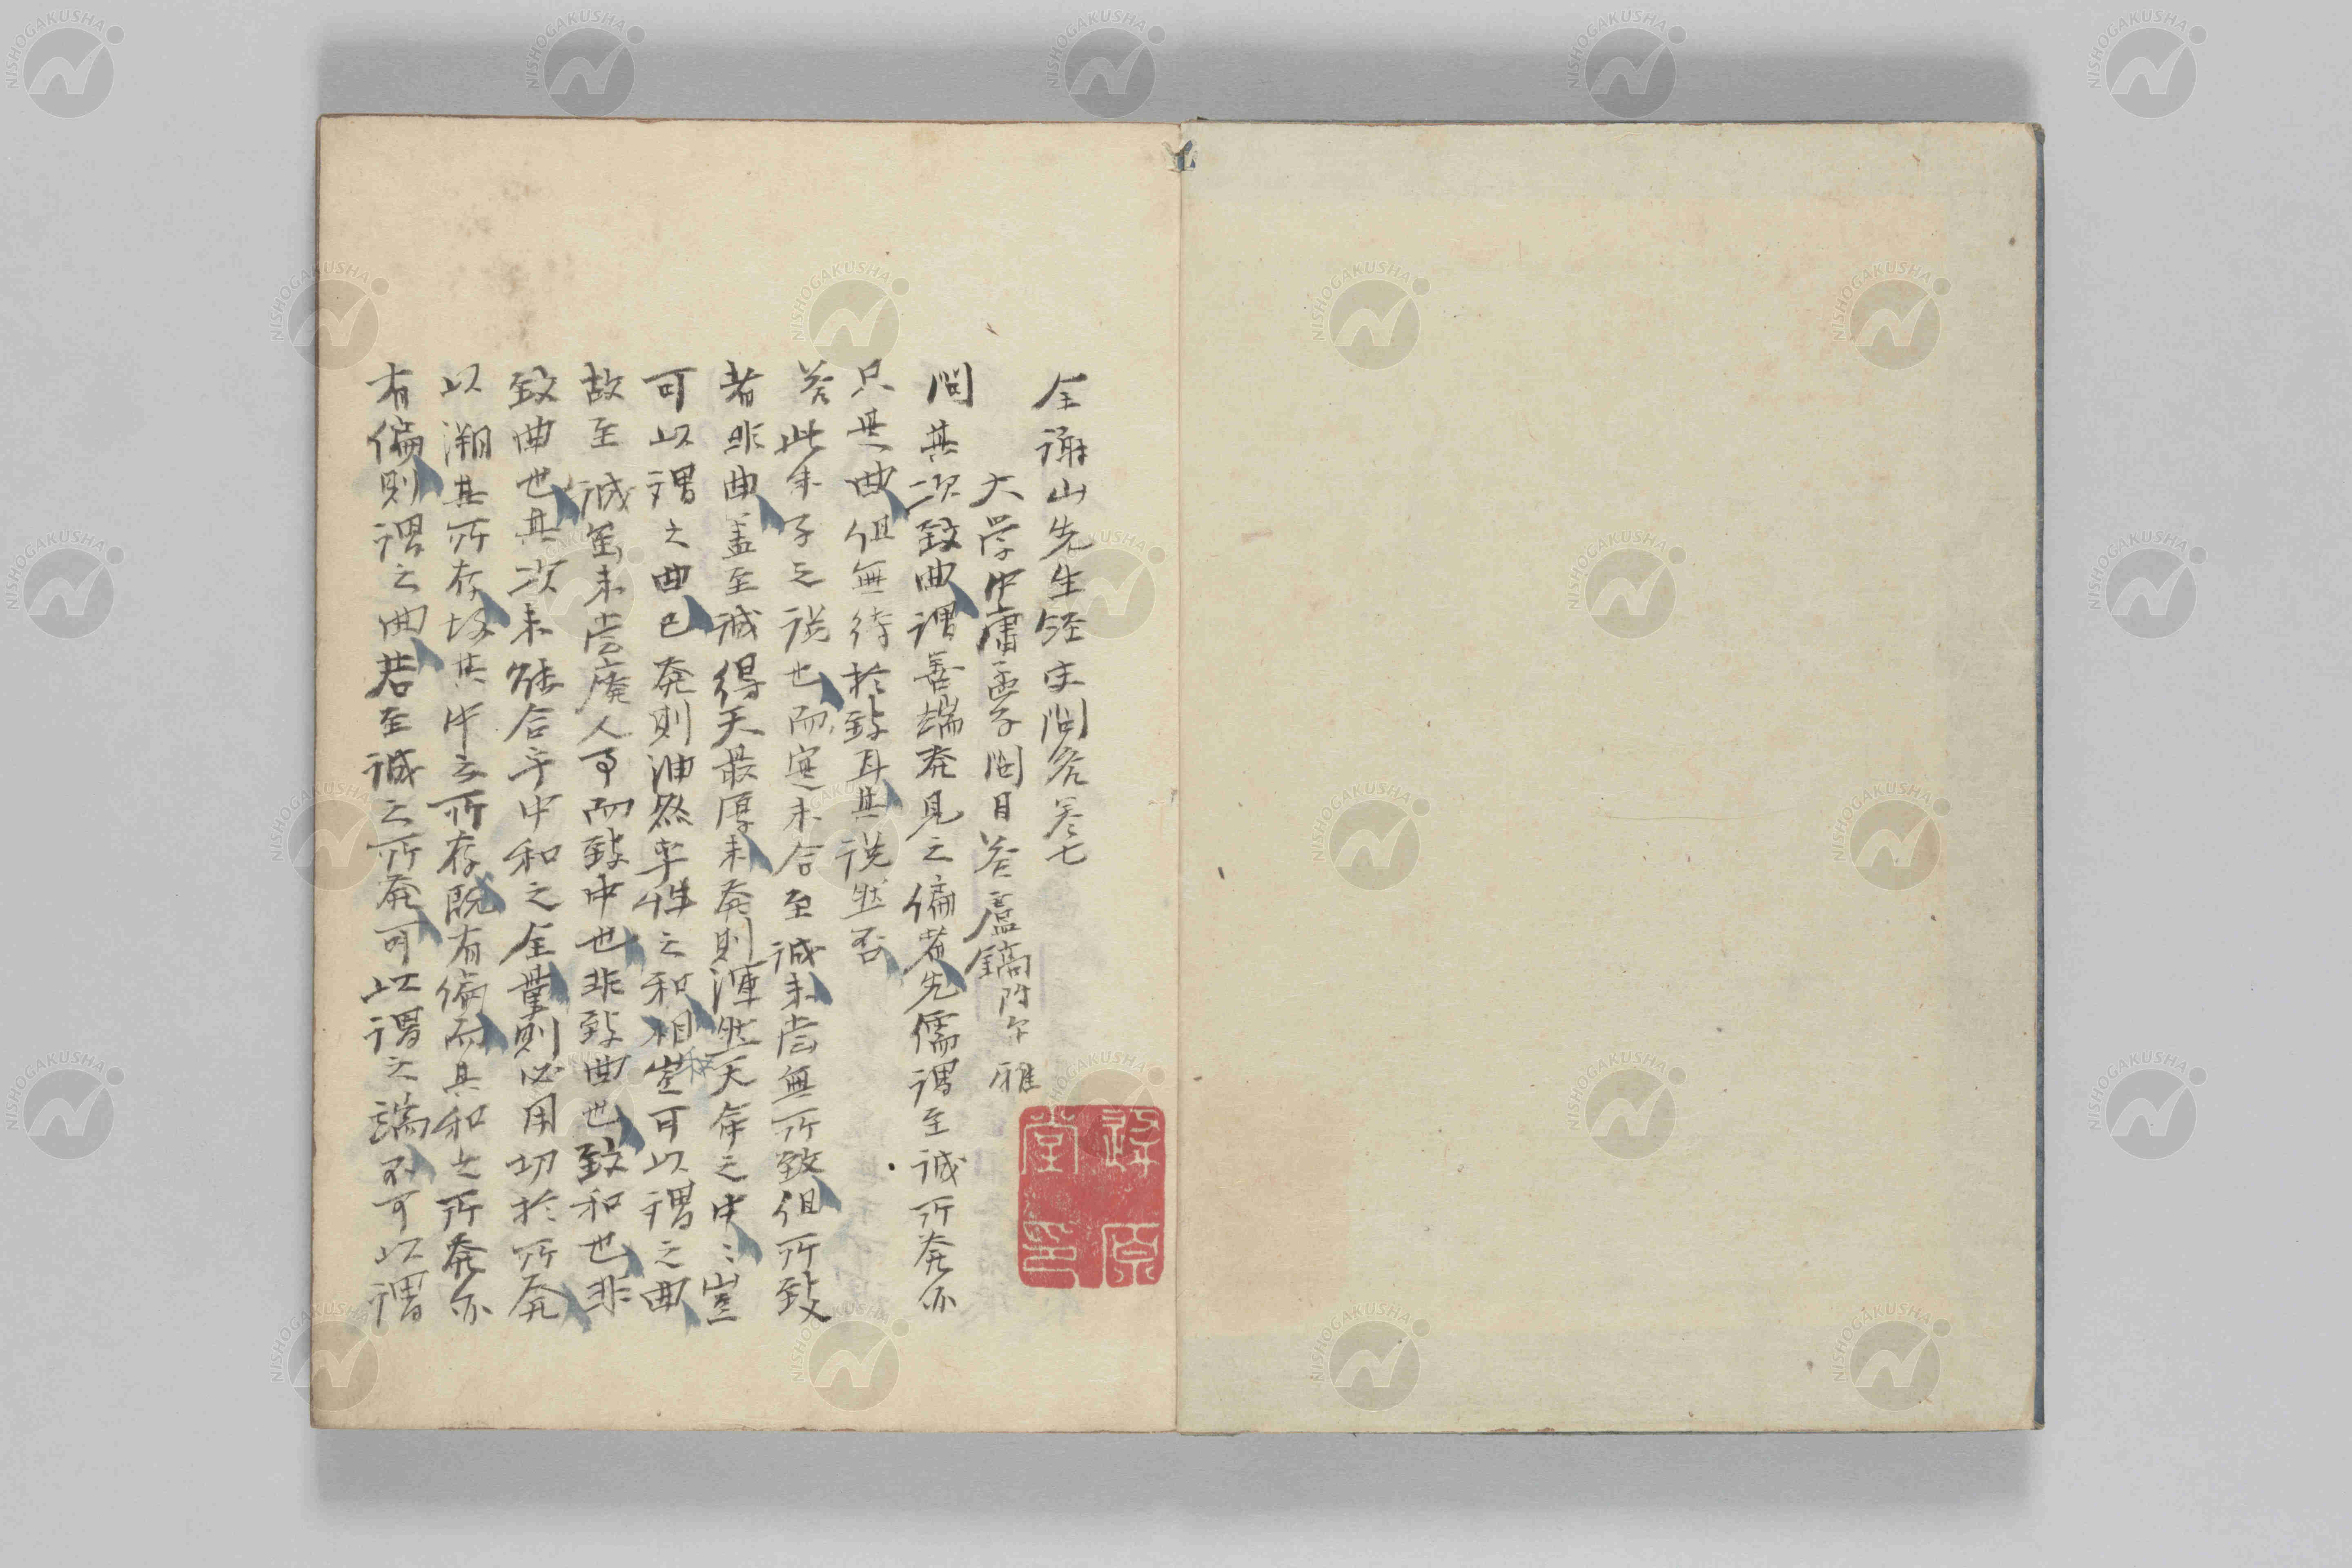 全謝山先生経史問答卷七
大学中庸孟子問目答盧鎬附尓雅
問其次致曲謂善端発見之偏者先儒謂至誠所発亦
只是曲但無待於致耳其説然否
答此朱子之説也而寔未合至誠未甞無所致但所致
者非曲盖至誠得天最厚未発則渾然天命之中々豈
可以謂之曲已発則油然率性之和相和豈可以謂之曲
故至誠雖未甞廃人事而致中也非致曲也致和也非
致曲也其次未能合乎中和之全量則必用切於所発
以溯其所存故其中之所存既有偏而其和之所発亦
有偏則謂之曲若至誠之所発可以謂之端不可以謂
堂印
原
NISHOGAKUSHA